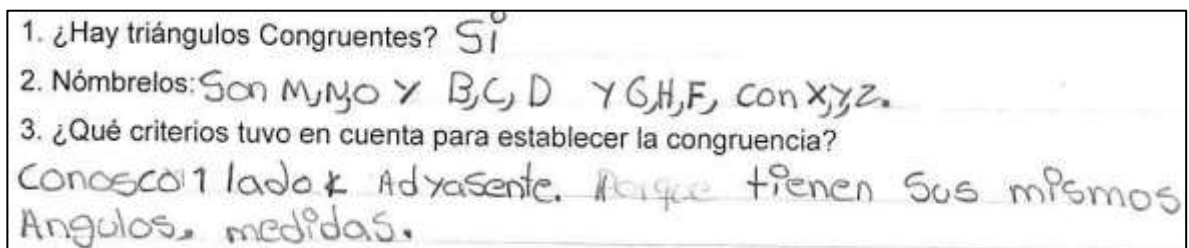 1. ¿Hay triángulos Congruentes? Si
2. Nómbrelos: Son M,N,O Y B,C,D Y G,H,F, con X,y,z.
3. ¿Qué criterios tuvo en cuenta para establecer la congruencia?
Conosco 1 lado Adyasente. Porque tienen Sus mismos
Angulos. medidas.